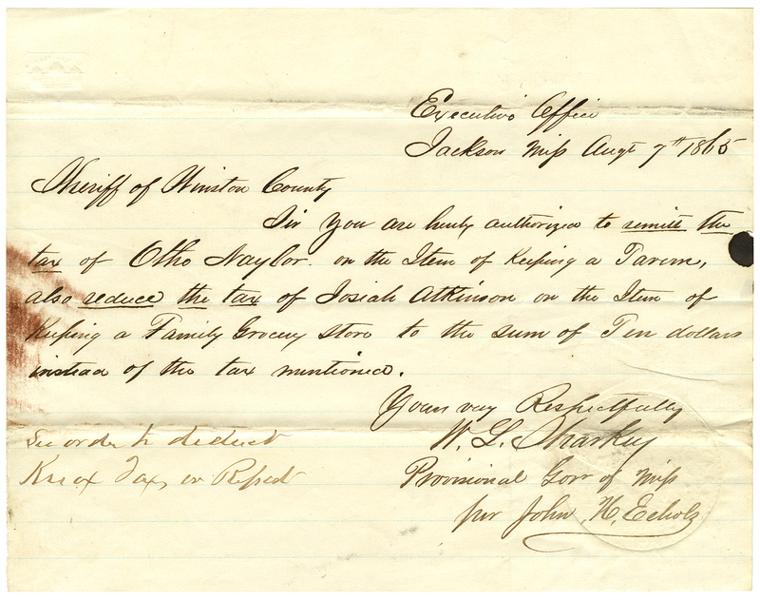 Executive Office
Jackson Miss Augt 7th 1865
Sheriff of Winston County
Sir You are hereby authorized to remit the
tax of Otho Naylor. on the Item of Keeping a Tavern,
also reduce the tax of Josiah Atkinson on the Item of
Keeping a Family Grocery store to the sum of Ten dollars
instead of the tax mentioned.
Yours very Respectfully
W. L. Sharkey
Provisional Govr of Miss
per John H. Echols
See order to deduct
Tax, or Report